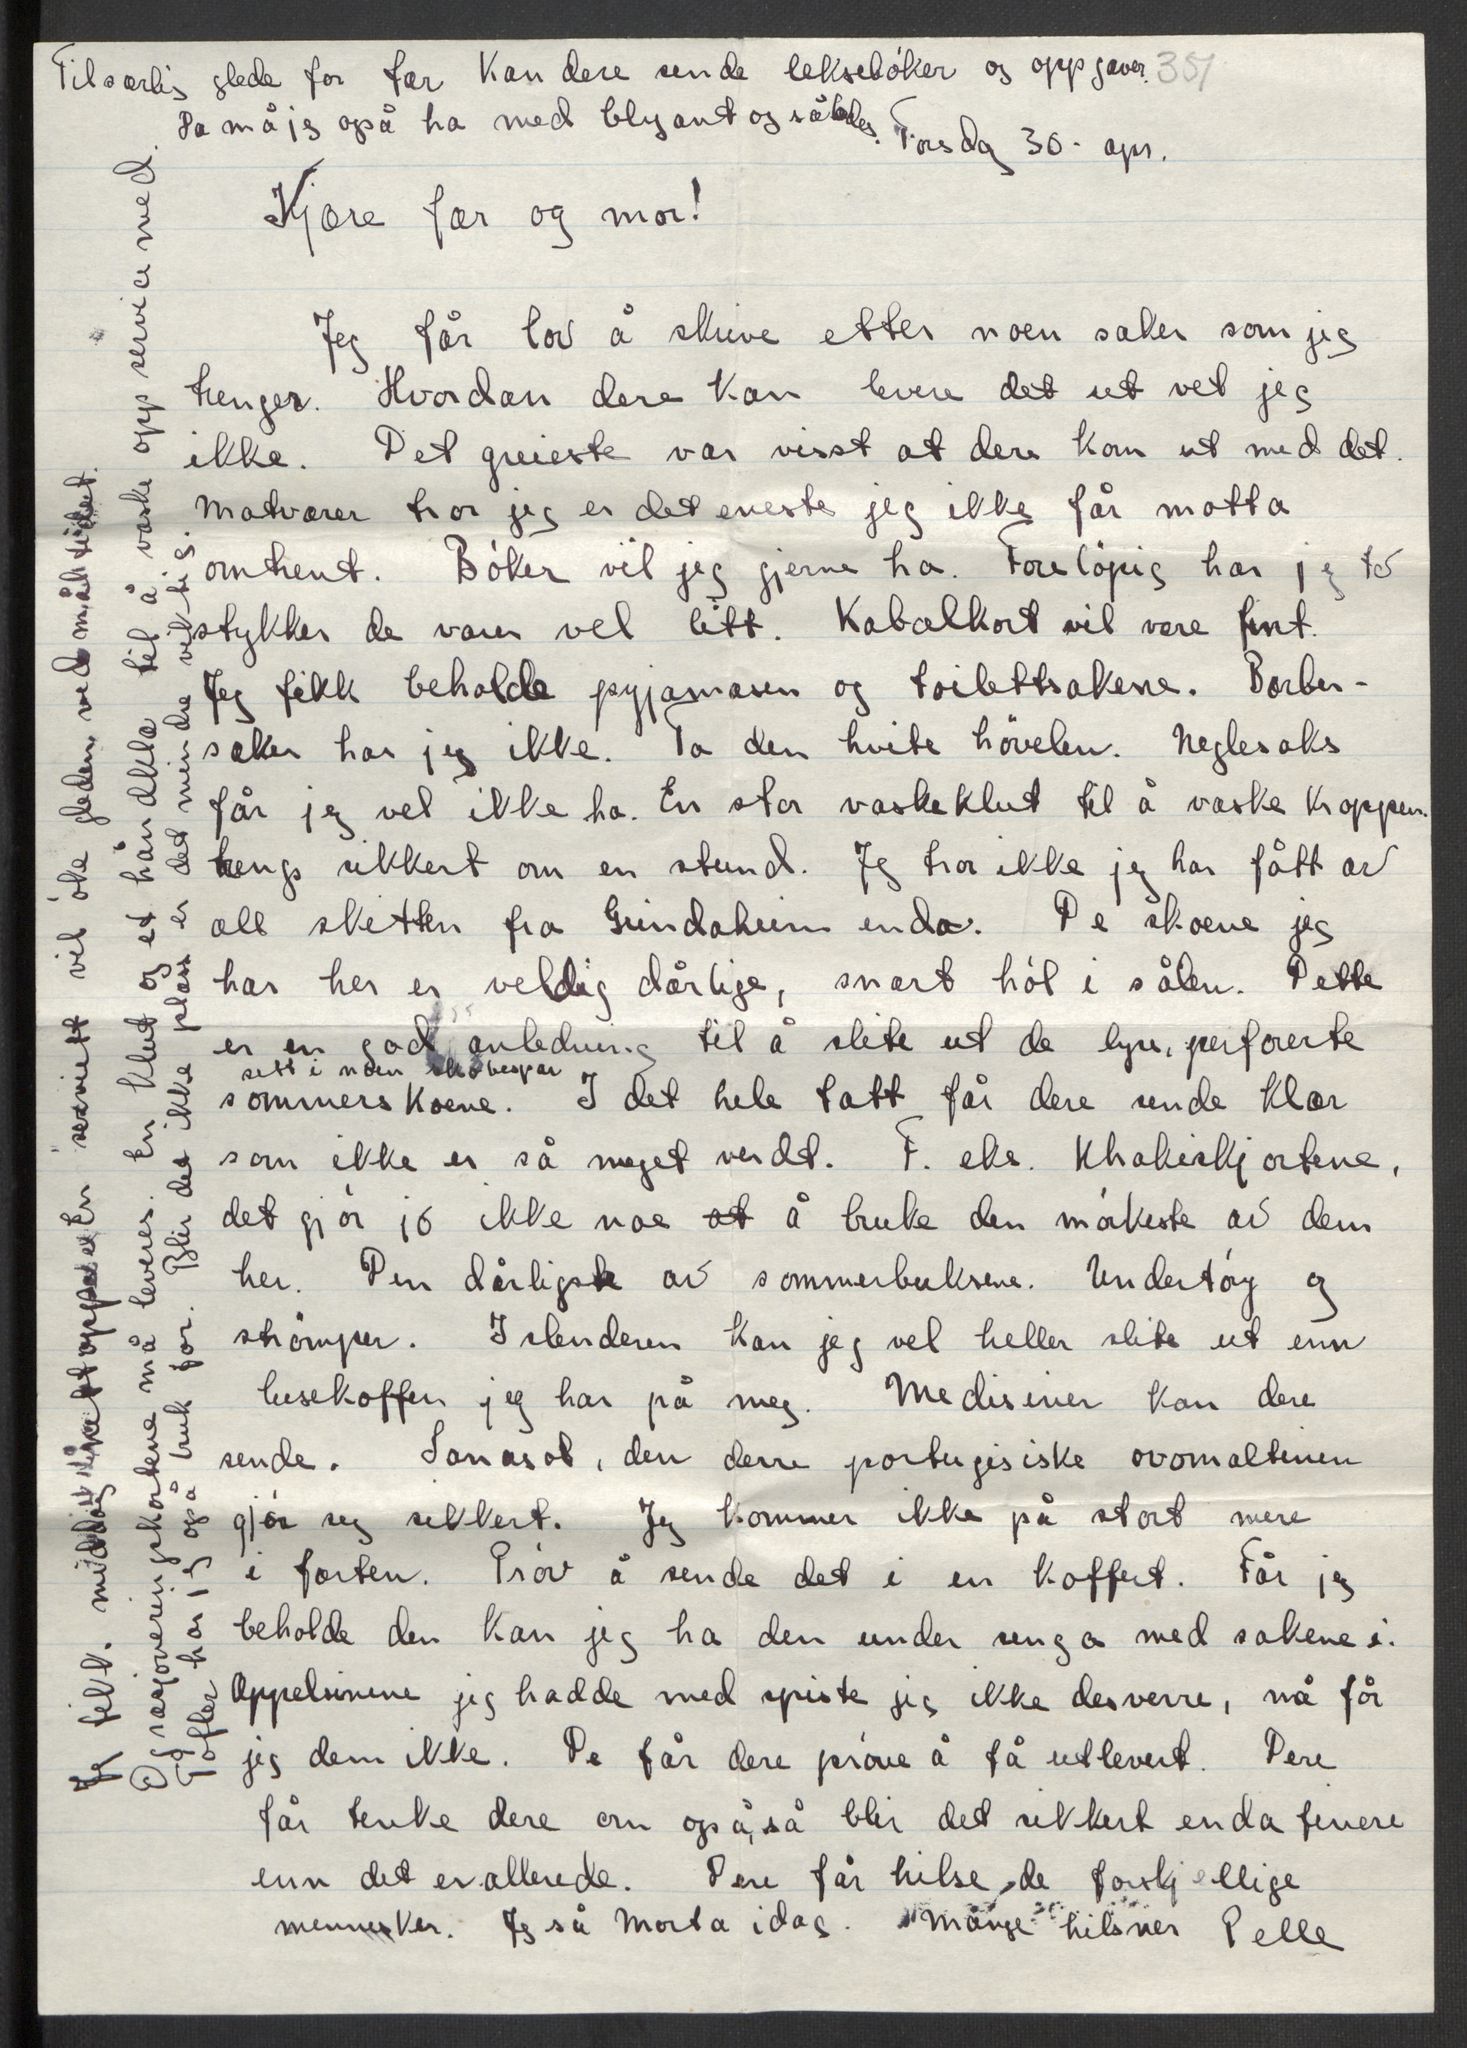 Til særlig glede for far kan dere sende leksebøker og oppgaver. 351
Da må jeg også ha med blyant og således.
Torsdag 30. apr.
Kjære far og mor!
Jeg får lov å skrive etter noen saker som jeg
trenger. Hvordan dere kan levere det ut vet jeg
ikke. Det greieste var visst at dere kom ut med det.
Matvarer tror jeg er det eneste jeg ikke får motta
omtrent. Bøker vil jeg gjerne ha. Foreløpig har jeg to
stykker de varer vel litt. Kabalkort vil være fint.
Jeg fikk beholde pyjamasen og toilettsakene. Barber-
saker har jeg ikke. Ta den hvite høvelen. Neglesaks
får jeg vel ikke ha. En stor vaskeklut til å vaske kroppen
trengs sikkert om en stund. Jeg tror ikke jeg har fått av
all skitten fra Grindaheim enda. De skoene jeg
har her er veldig dårlige, snart hól i sålen. Dette
er en god anledning til å slite ut de lyse, perforerte
sett i noen skobespar
sommerskoene. I det hele tatt får dere sende klær
som ikke er så meget verdt. F. eks. Khakiskjortene,
det gjør jo ikke noe at å bruke den mørkeste av dem
her. Den dårligste av sommerbuksene. Undertøy og
strømper. Islenderen kan jeg vel heller slite ut enn
lusekoften jeg har på meg. Medisiner kan dere
sende. Sanasol, den derre portugisiske ovomaltinen
gjør seg sikkert. Jeg kommer ikke på stort mere
i farten. Prøv å sende det i en koffert. Får jeg
beholde den kan jeg ha den under senga med sakene i.
Appelsinene jeg hadde med spiste jeg ikke desverre, nå får
jeg dem ikke. De får dere prøve å få utlevert. Dere
får tenke dere om også, så blir det sikkert enda finere
enn det er allerede. Dere får hilse de forskjellige
mennesker. Jeg så Morta idag. Mange hilsner Pelle
Jeg fikk middag En serviett vil øke gleden ved måltidet.
Og rasjoneringskortene må leveres. En klut og et håndkle til å vaske opp servise med.
Tøfler har jeg også bruk for. Blir det ikke plass er det mindre viktig.